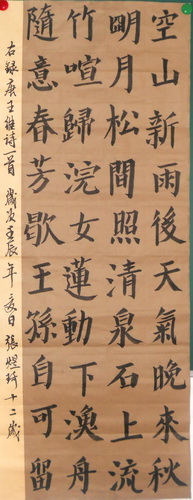 空山新雨後天氣晚來秋
明月松間照清泉石上流
竹喧歸浣女蓮動下漁舟
隨意春芳歇王孫自可留
右録唐王維詩一首 歲次壬辰年 夏日 張煜琦 十二歲